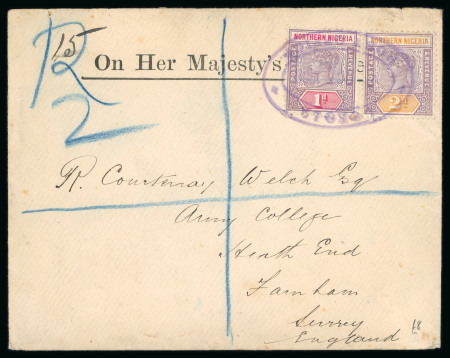 15
R
2
On Her Majesty's
NORTHERN NIGERIA
POSTAGE
1d
NORTHERN NIGERIA
POSTAGE
2d
R. Courtenay Welch Esq
Army College
Heath End
Farnham
Surrey
England
£8